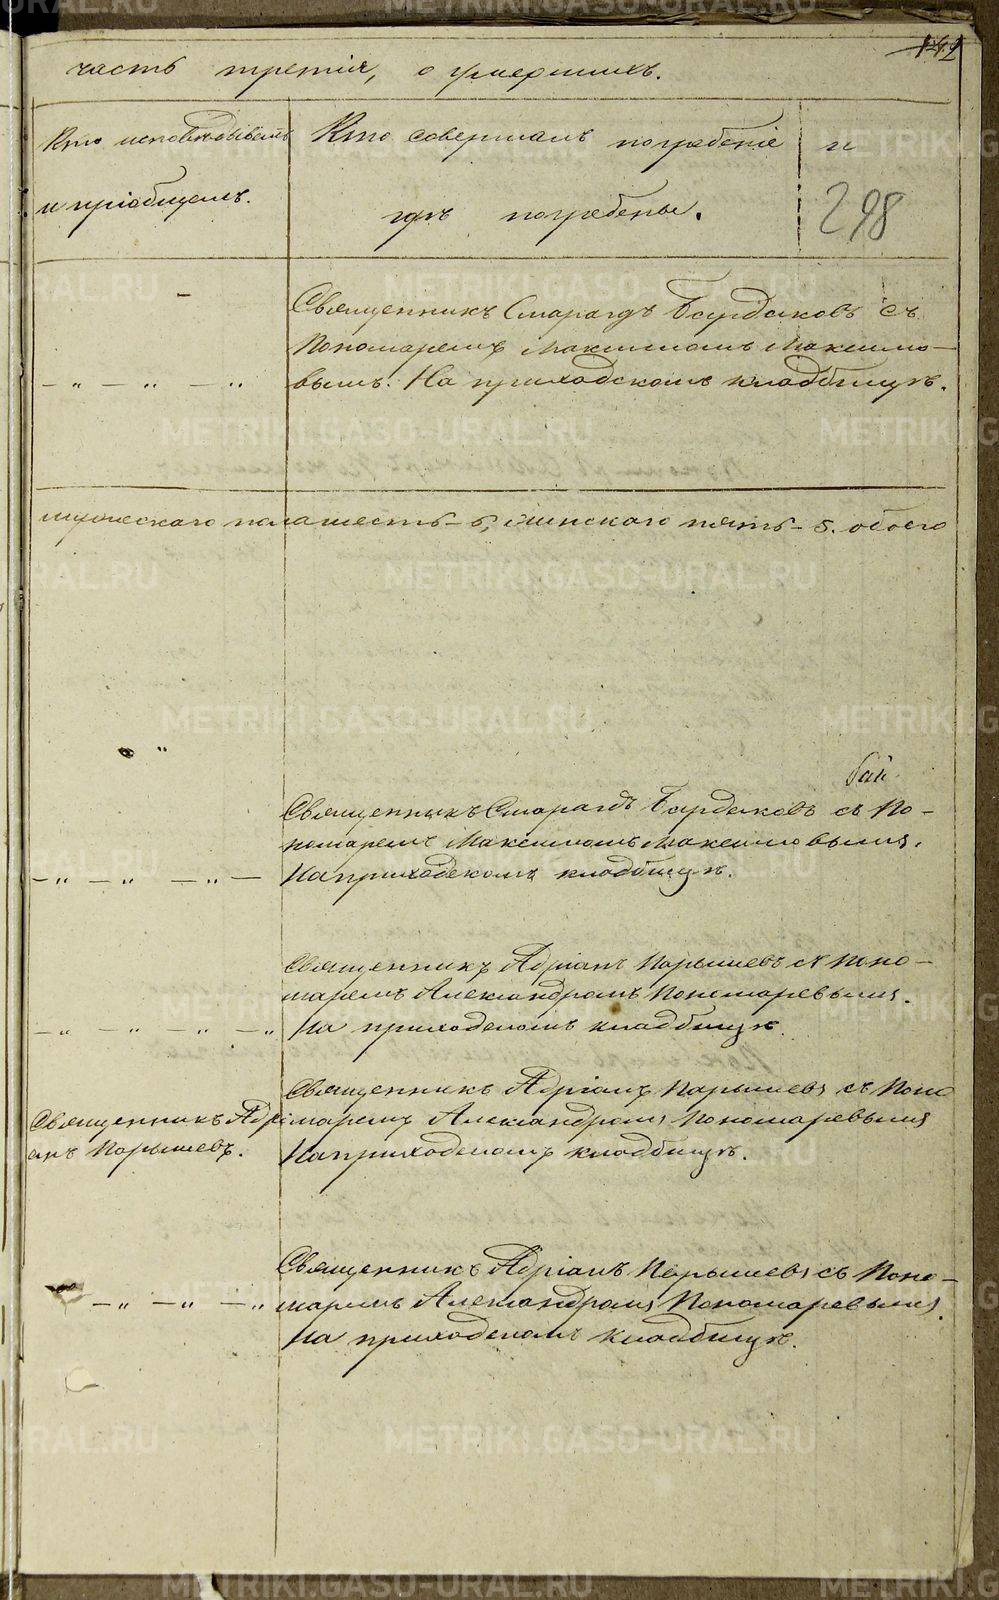 142
часть третія, о умершихъ.
Кто исповѣдывалъ
и пріобщалъ.
Кто совершалъ погребеніе и
гдѣ погребены.
298
Священникъ Смарагдъ Бардаковъ съ
Пономаремъ Максимомъ Максимо-
- „ - „ - „ вымъ. На приходскомъ кладбищѣ.
мужескаго пола шесть - 6, женскаго пять - 5. обоего
„
Священникъ Смарагдъ Бардаковъ съ По-
номаремъ Максимомъ Максимовымъ.
- „ - „ - „ - На приходскомъ кладбищѣ.
Священникъ Адріанъ Парышевъ съ Поно-
маремъ Александромъ Пономаревымъ.
- „ - „ - „ - „ На приходскомъ кладбищѣ.
Священникъ Адріанъ Парышевъ съ Поно
Священникъ Адрі- маремъ Александромъ Пономаревымъ
анъ Парышевъ. На приходскомъ кладбищѣ.
Священникъ Адріанъ Парышевъ съ Поно-
- „ - „ - „ маремъ Александромъ Пономаревымъ.
На приходскомъ кладбищѣ.
METRIKI.GASO-URAL.RU